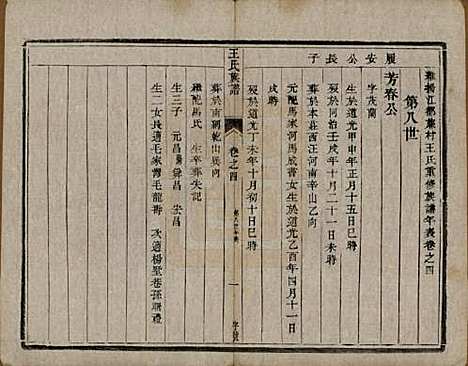 維揚江都蕭村王氏重修族譜年表卷之四
第八世
履安公長子
芳春公
字茂蘭
生於道光甲申年正月十五日巳時
歿於同治壬戌年十月二十一日未時
葬於本莊西汪河南辛山乙向
元配馬家河馬成書女生於道光乙酉年四月十一日
戌時
王氏族譜
卷之四
一
歿於道光丁未年十月初十日巳時
葬於南嗣乾山巽向
繼配馬氏 生卒葬失記
生三子 元昌 舜昌 宏昌
生二女長適毛家灣毛龍壽 次適楊墅巷孫朋禮